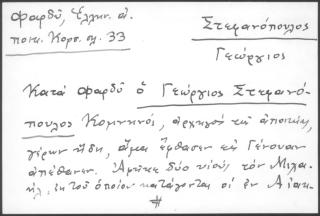 Φαρδῦ, Ἑλλην. ἀ.
ποικ. Κορσ. σλ. 33
Στεφανόπουλος
Γεώργιος
Κατὰ Φαρδῦ ὁ Γεώργιος Στεφανό-
πουλος Κομνηνός, ἀρχηγὸς τῆς ἀποικίας,
γέρων ἤδη, ἅμα ἔφθασεν εἰς Γένουαν
ἀπέθανεν. Ἀφῆκε δύο υἱούς, τὸν Μιχα-
ήλ, ἐκ τοῦ ὁποίου κατάγονται οἱ ἐν Αἰακ-
#